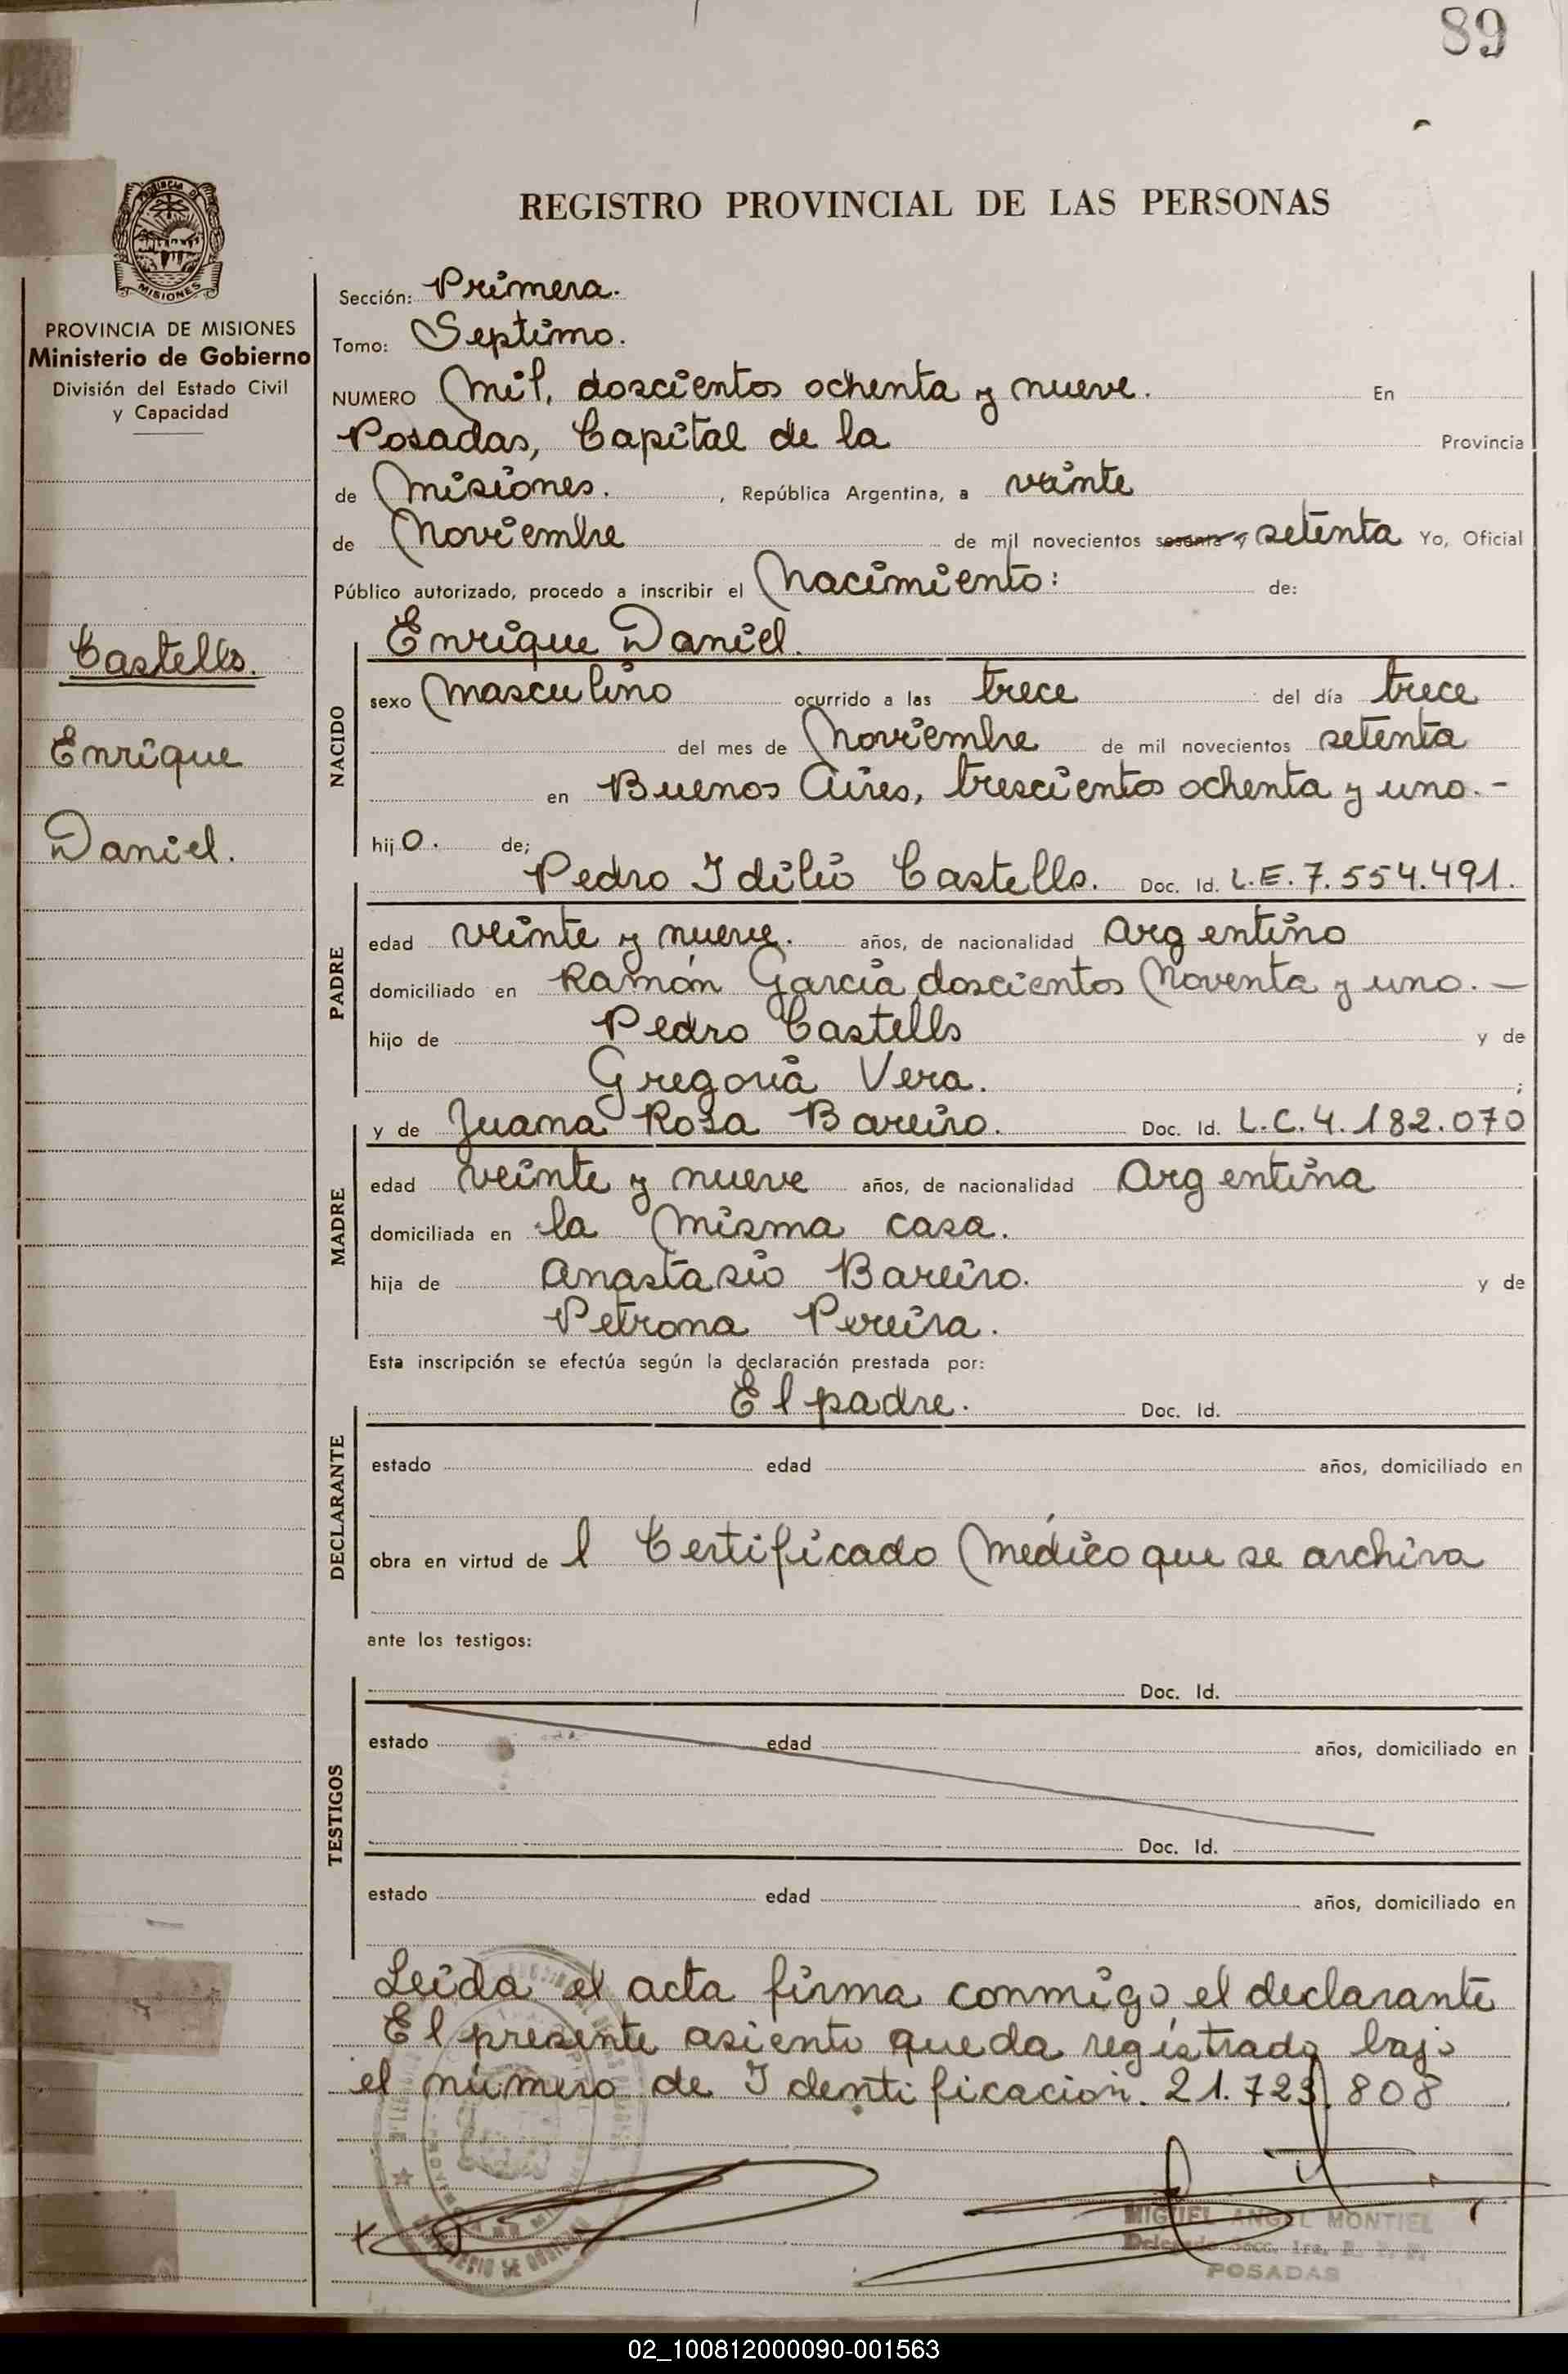 89
REGISTRO PROVINCIAL DE LAS PERSONAS
MISIONES
PROVINCIA DE MISIONES
Ministerio de Gobierno
División del Estado Civil
y Capacidad
Castells.
Enrique
Daniel.
Sección: Primera.
Tomo: Septimo.
NUMERO Mil, doscientos ochenta y nueve. En
Posadas, Capital de la Provincia
de Misiones. , República Argentina, a veinte
de Noviembre de mil novecientos sesenta y setenta Yo, Oficial
Público autorizado, procedo a inscribir el Nacimiento: de:
Enrique Daniel.
NACIDO
sexo Masculino ocurrido a las trece del día trece
del mes de Noviembre de mil novecientos setenta
en Buenos Aires, trescientos ochenta y uno.-
hijo. de;
Pedro Idilio Castells. Doc. Id. L.E. 7.554.491.
PADRE
edad veinte y nueve. años, de nacionalidad Argentino
domiciliado en Ramón García doscientos Noventa y uno. -
hijo de Pedro Castells y de
Gregoria Vera. ;
y de Juana Rosa Bareiro. Doc. Id. L.C. 4.182.070
MADRE
edad veinte y nueve años, de nacionalidad Argentina
domiciliada en la Misma casa.
hija de Anastasio Bareiro. y de
Petrona Pereira.
Esta inscripción se efectúa según la declaración prestada por:
El padre. Doc. Id.
DECLARANTE
estado edad años, domiciliado en
obra en virtud de l Certificado Médico que se archiva
ante los testigos:
Doc. Id.
TESTIGOS
estado edad años, domiciliado en
Doc. Id.
estado edad años, domiciliado en
Leida el acta firma conmigo el declarante
El presente asiento queda registrado bajo
el número de Identificación. 21.723.808
MIGUEL ANGEL MONTIEL
Delegado Secc. 1ra. R. P. P.
POSADAS
02_100812000090-001563